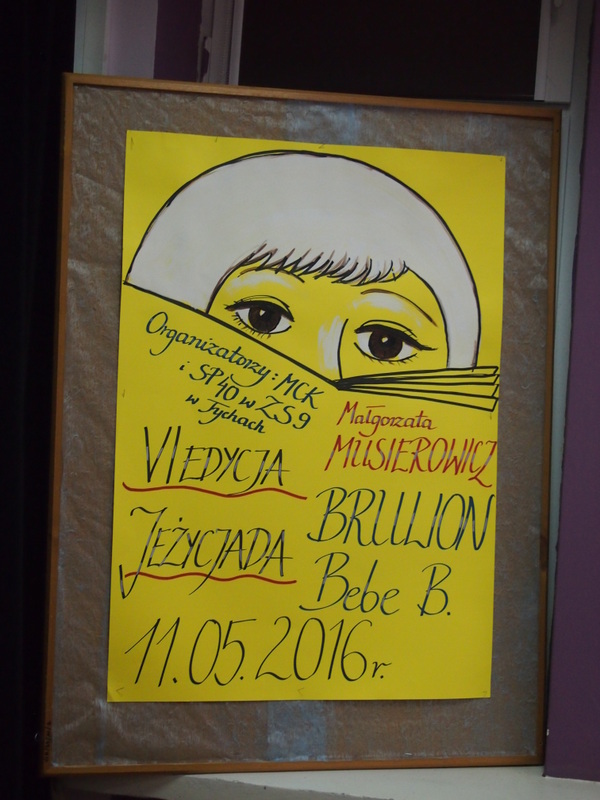 Organizatorzy: MCK
i SP40 w ZS9
w Tychach
VI EDYCJA
JEŻYCJADA
Małgorzata
MUSIEROWICZ
BRULION
Bebe B.
11.05.2016r.